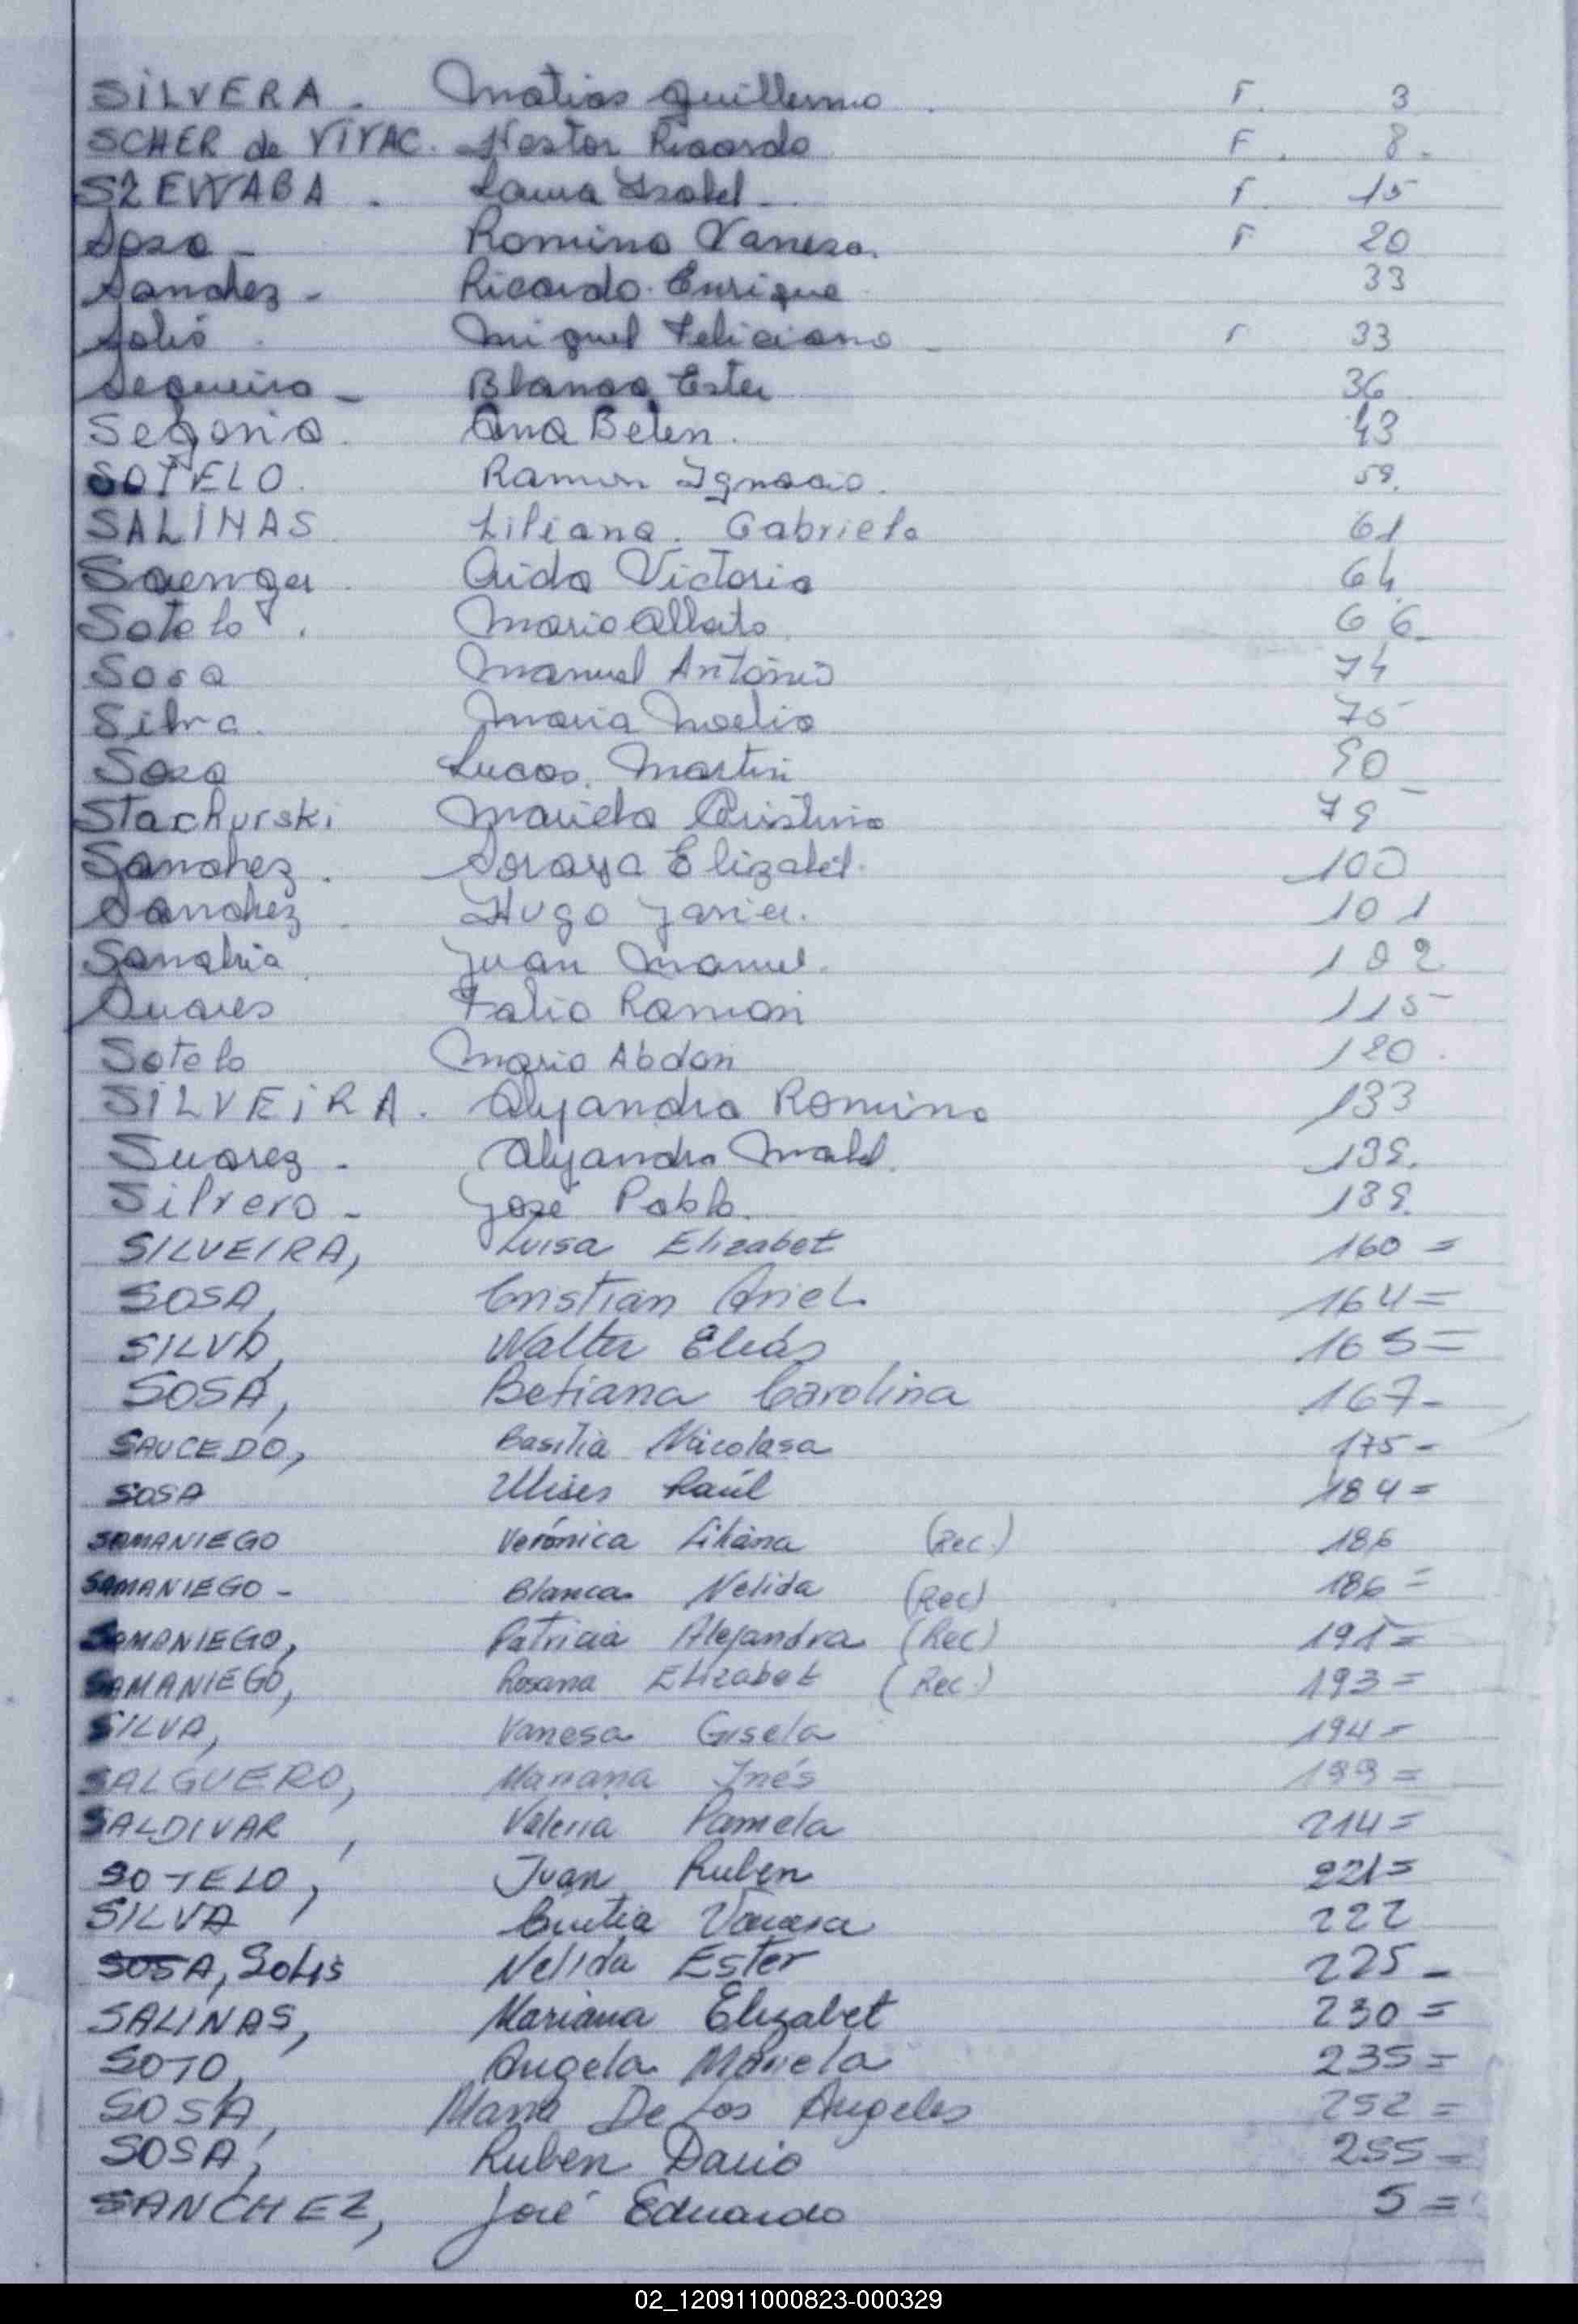 SILVERA. Matias Guillermo. F. 3
SCHER de VIVAC. Nestor Ricardo F. 8.
Laura Isabel F. 15
Sosa - Romina Vanesa. F 20
Sanchez - Ricardo Enrique 33
Solis. Miguel Feliciano - F 33
Sequeira - Blanca Ester 36
Segovia. Ana Belen. 43
SOTELO. Ramon Ignacio. 59.
SALINAS. Liliana. Gabriela 61
Saenger. Aida Victoria 64
Sotelo. Mario Alberto. 66
Sosa Manuel Antonio 74
Silva. Maria Noelia 75
Sosa Lucas. Martin 90
Stachurski Mariela Cristina 79
Sanchez. Soraya Elizabet. 100
Sanchez. Hugo Javier. 101
Sanabria. Juan Manuel. 102
Suares Fabio Ramon 115
Sotelo Mario Abdon 120.
SILVEIRA. Alejandra Romina 133
Suarez. Alejandra Mabel. 139.
Silvero - José Pablo. 139.
SILVEIRA, Luisa Elizabet 160 =
SOSA, Cristian Ariel 164 =
SILVA, Walter Elias 165 =
SOSA, Betiana Carolina 167 -
SAUCEDO, Basilia Nicolasa 175 -
SOSA Ulises Raúl 184 =
SAMANIEGO Verónica Liliana (Rec.) 186
SAMANIEGO - Blanca Nelida (Rec) 186 =
SAMANIEGO, Patricia Alejandra (Rec) 191 =
SAMANIEGO, Rosana Elizabet (Rec.) 193 =
SILVA, Vanesa Gisela 194 =
SALGUERO, Mariana Inés 199 =
SALDIVAR, Valeria Pamela 214 =
SOTELO, Juan Ruben 221 =
SILVA Cintia Vanesa 222
SOSA, Solis Nelida Ester 225 -
SALINAS, Mariana Elizabet 230 =
SOTO, Angela Mariela 235 =
SOSA, Maria De Los Angeles 252 =
SOSA, Ruben Dario 255 -
SANCHEZ, José Eduardo 5 =
02_120911000823-000329